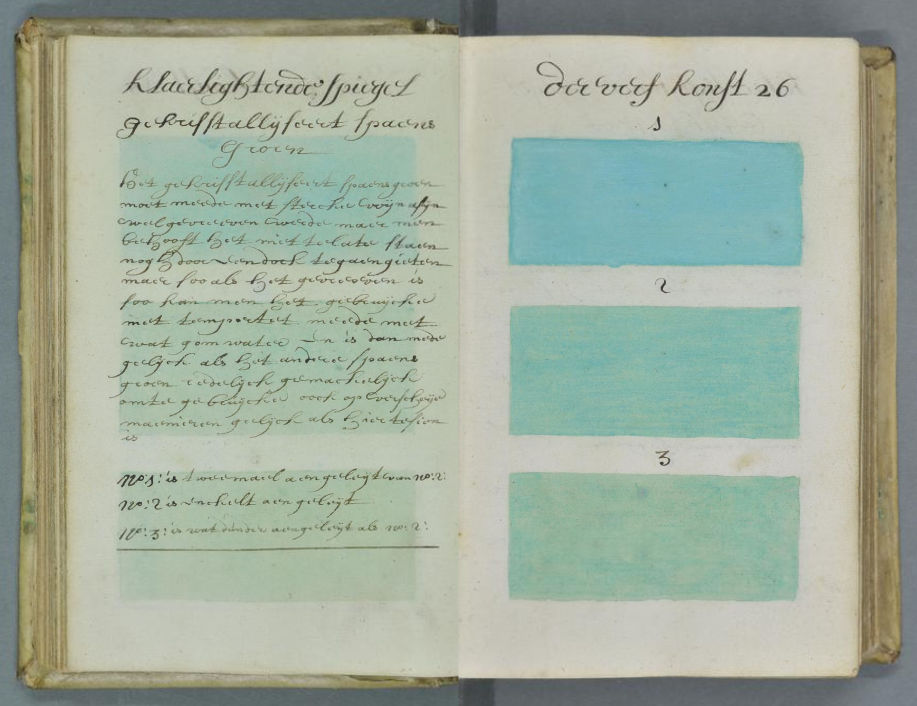 klaerlightende spiegel
gekrisstallyseert spaens
Groen
Het gekrisstallyseert spaensgroen
moet meede met stercke wynasyn
wel gevreeven werde maer men
behooft het niet te late staen
nogh door een doek te gaen gieten
maer soo als het gevreeven is
soo kan men het gebruycke
met tempereet meede met
wat gomwater en is dan mede
gelyck als het andere spaens
groen redelyck gemackelyck
omte gebruycke oock op verscheyde
manieren gelyck als hier te sien
is
No: 1: is tweemael aengeleyt van no: 2:
No: 2 is enckelt aengeleyt
No: 3: is wat dunder aengeleyt als no: 2:
der verf konst 26
1
2
3